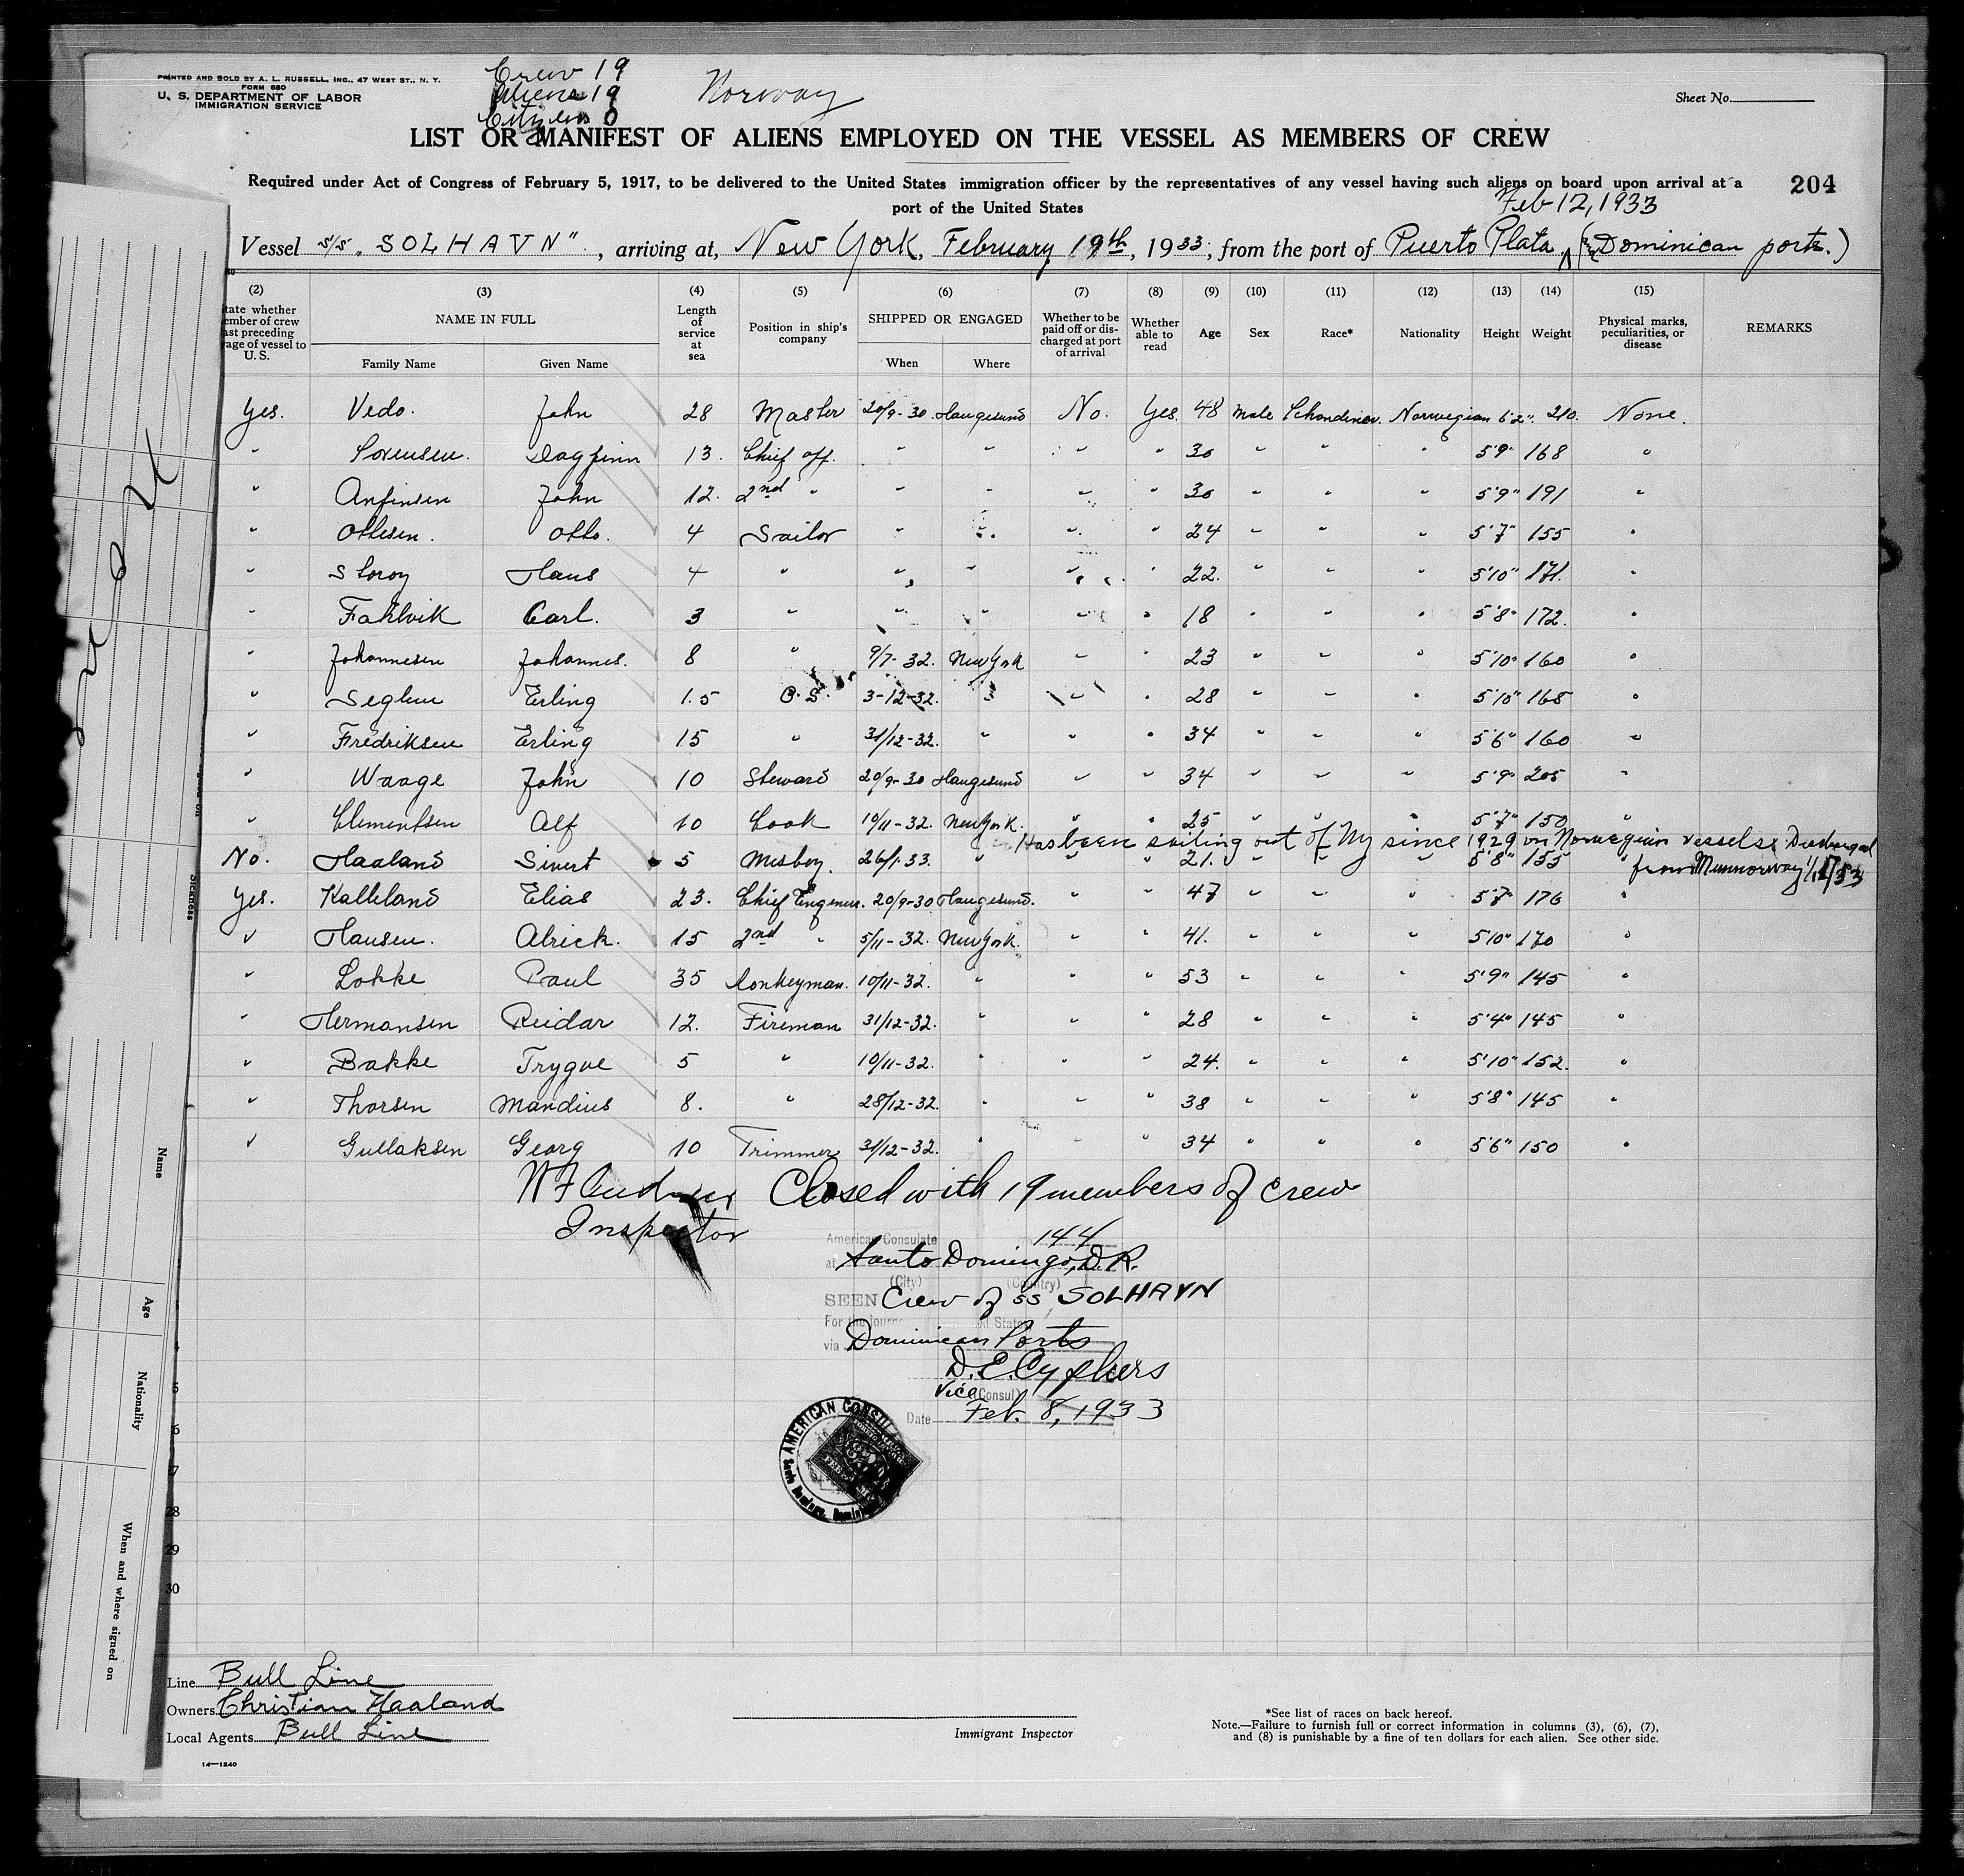 PRINTED AND SOLD BY A. L. RUSSELL, INC., 47 WEST ST., N. Y.
FORM 680
U. S. DEPARTMENT OF LABOR
IMMIGRATION SERVICE
Crew 19
Aliens 19
Citizens 0
Norway
Sheet No.
LIST OR MANIFEST OF ALIENS EMPLOYED ON THE VESSEL AS MEMBERS OF CREW
Required under Act of Congress of February 5, 1917, to be delivered to the United States immigration officer by the representatives of any vessel having such aliens on board upon arrival at a
port of the United States
204
Feb 12, 1933
Vessel s/s „SOLHAVN", arriving at, New York, February 19th, 1933, from the port of Puerto Plata (Dominican ports.)
(2) (3) (4) (5) (6) (7) (8) (9) (10) (11) (12) (13) (14) (15)
tate whether ember of crew ast preceding age of vessel to U. S.
NAME IN FULL
Family Name Given Name
Length of service at sea
Position in ship's company
SHIPPED OR ENGAGED
When Where
Whether to be paid off or discharged at port of arrival
Whether able to read
Age Sex Race* Nationality Height Weight
Physical marks, peculiarities, or disease
REMARKS
Yes. Vedo. John 28 Master 20/9-30. Haugesund No. Yes. 48 Male Schandinav. Norwegian 6'2". 210. None.
" Sorensen. Dagfinn 13. Chief off. " " " " 30 " " " 5'9" 168 "
" Anfinsen John 12. 2nd " " " " " 30 " " " 5'9" 191 "
" Ottesen. Otto. 4 Sailor " " " " 24 " " " 5'7" 155 "
" Storoy Hans 4 " " " " " 22. " " " 5'10" 171. "
" Fahlvik Carl. 3 " " " " " 18 " " " 5'8" 172. "
" Johannesen Johannes. 8 " 9/7-32. New York " " 23 " " " 5'10" 160 "
" Seglem Erling 1.5 O.S. 3-12-32. " " " 28 " " " 5'10" 168 "
" Fredriksen Erling 15 " 31/12-32. " " " 34 " " " 5'6" 160 "
" Waage John 10 Steward 20/9-30 Haugesund " " 34 " " " 5'9" 205 "
" Clementsen Alf 10 Cook 10/11-32. New York. " " 25 " " " 5'7" 150 "
Has been sailing out of NY since 1929 on Norwegian vessels. Discharged
from Munnorway
No. Haaland Sivert 5 Mesboy. 26/1.33. " " " 21. " " " 5'8" 155 "
Yes. Kalleland Elias 23. Chief Engineer. 20/9-30 Haugesund. " " 47 " " " 5'7" 176 "
" Hansen. Alrick. 15 2nd " 5/11-32. New York. " " 41. " " " 5'10" 170 "
" Lokke Paul 35 Donkeyman. 10/11-32. " " " 53 " " " 5'9" 145 "
" Hermansen Reidar 12. Fireman 31/12-32. " " " 28 " " " 5'4" 145 "
" Bakke Trygve 5 " 10/11-32. " " " 24. " " " 5'10" 152. "
" Thorsen Mandius 8. " 28/12-32. " " " 38 " " " 5'8" 145 "
" Gullaksen Georg 10 Trimmer 31/12-32. " " " 34 " " " 5'6" 150 "
Closed with 19 members of crew
Inspector
American Consulate 144
at Santo Domingo, D.R.
(City) (Country)
SEEN Crew of SS SOLHAVN
For the journ States
via Dominican Ports
D. E. Cyphers
Vice (Consul)
Date Feb. 8, 1933
AMERICAN CONSUL
28
29
30
Sickness
Name
Age
Nationality
When and where signed on
Line Bull Line
Owners Christian Haaland
Local Agents Bull Line
Immigrant Inspector
*See list of races on back hereof.
Note.—Failure to furnish full or correct information in columns (3), (6), (7),
and (8) is punishable by a fine of ten dollars for each alien. See other side.
14—1240